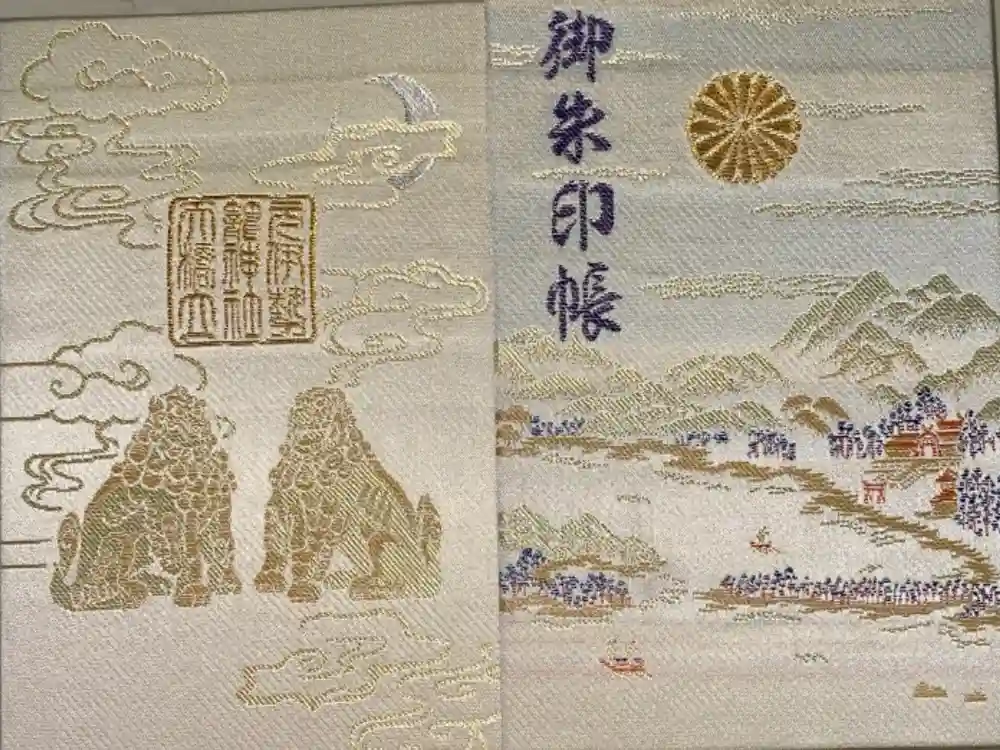 御朱印帳
元伊勢
籠神社
天橋立